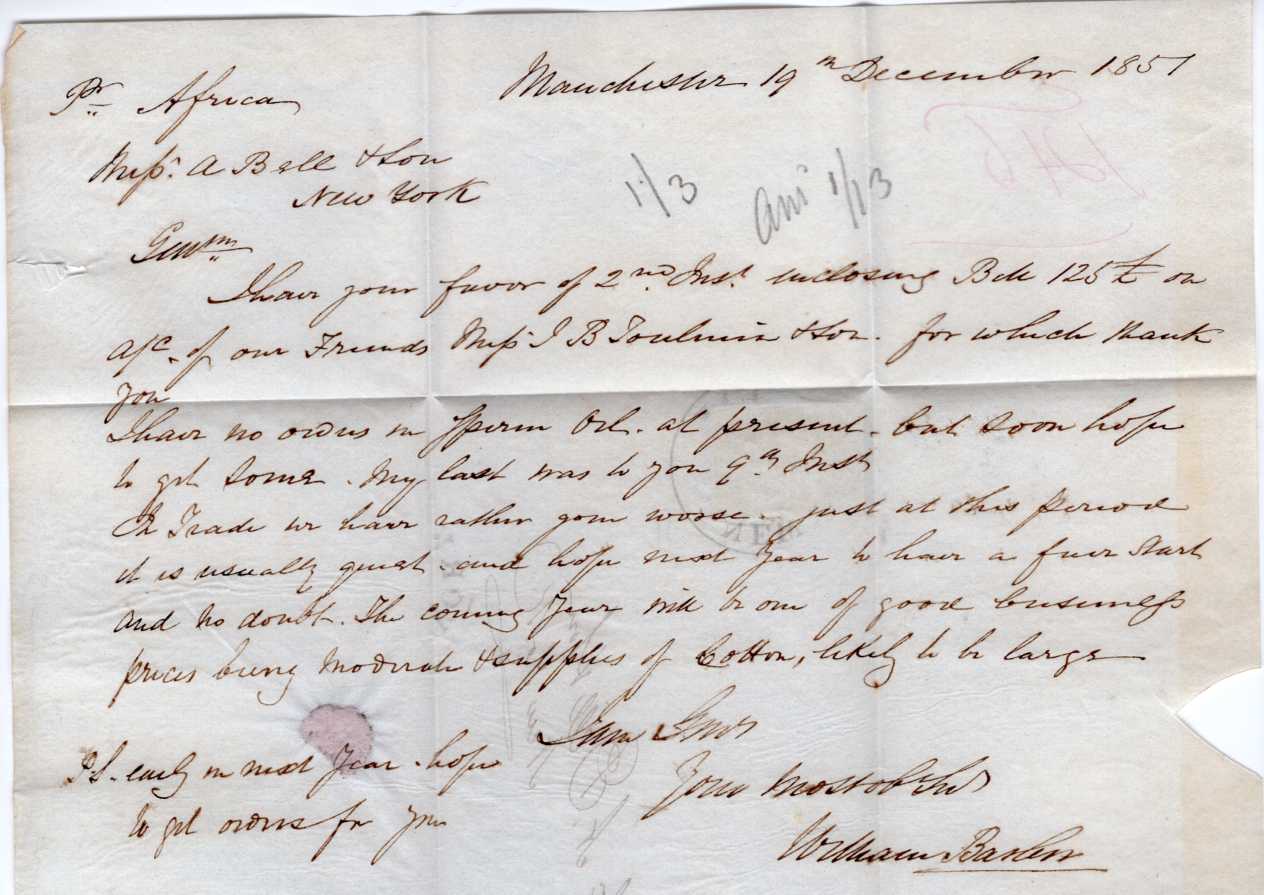 Pr Africa
Manchester 19th December 1851
Messrs A Bell & Son
New York
1/3
Ans 1/13
Gentm
I have your favor of 2nd Inst. inclosing Bill 125£ on
a/c. of our Friends Messrs J B Toulmin & Son. for which thank
you
I have no orders in Sperm Oil. at present. but soon hope
to get some. My last was to you 9th Inst
In Trade we have rather gone worse. just at this period
it is usually quiet. and hope next year to have a fair start
and no doubt. The coming year will be one of good business
prices being moderate & supplies of Cotton, likely to be large
I am Gents
Your Most ob Sert
William
P.S. early in next year. hope
to get orders for you